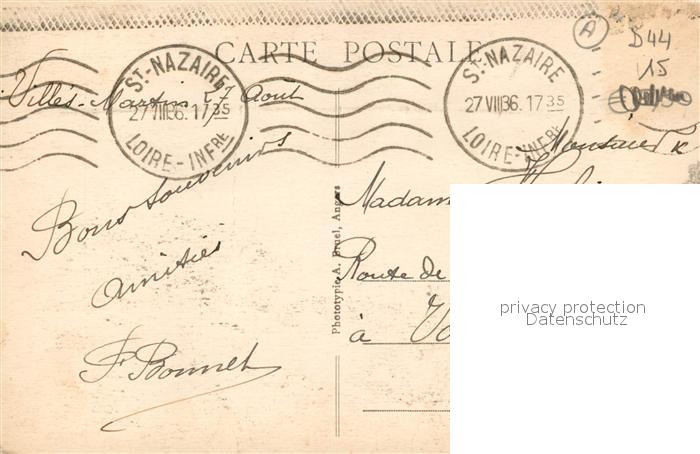 CARTE POSTALE
ST-NAZAIRE
27 VIII 36. 17 35
LOIRE-INFRE
ST-NAZAIRE
27 VIII 36. 17 35
LOIRE-INFRE
A
D44
15
Villès-Martin 27 Août
Bons souvenirs
amitiés
F. Bonnet
Phototypie A. Bruel, Angers
Monsieur &
Madam
Route de
à
privacy protection
Datenschutz